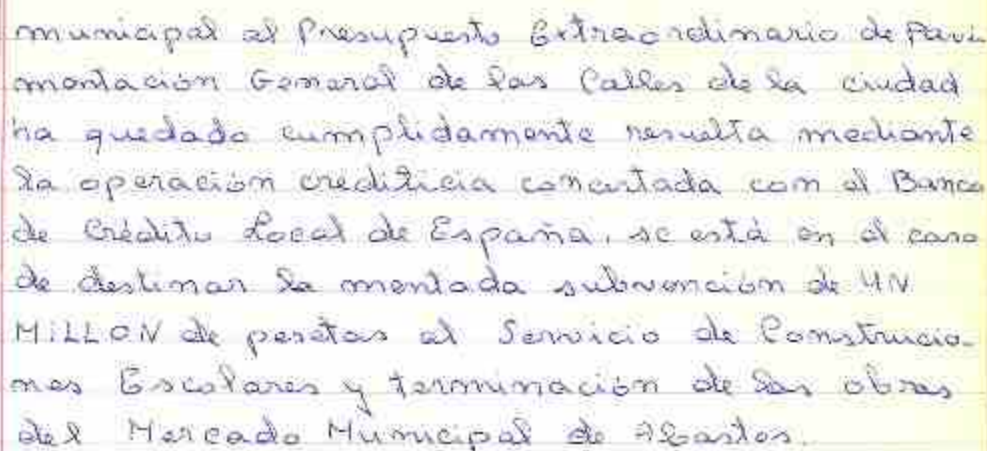 municipal al Presupuesto Extraordinario de Pavi
mentación General de las Calles de la ciudad
ha quedado cumplidamente resuelta mediante
la operación crediticia concertada con el Banco
de Crédito Local de España, se está en el caso
de destinar la mentada subvención de UN
MILLON de pesetas al Servicio de Construcio-
nes Escolares y terminación de las obras
del Mercado Municipal de Abastos.